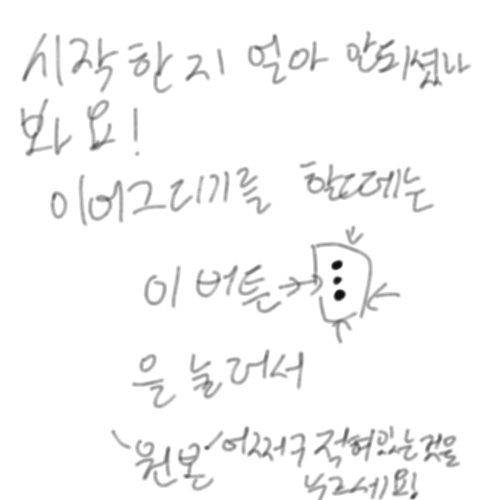 시작한지 얼아 안되셨나
봐요!
이어그리기를 할때는
이 버튼→
을 눌러서
'원본' 어쩌구 적혀있는것을
누르세요!